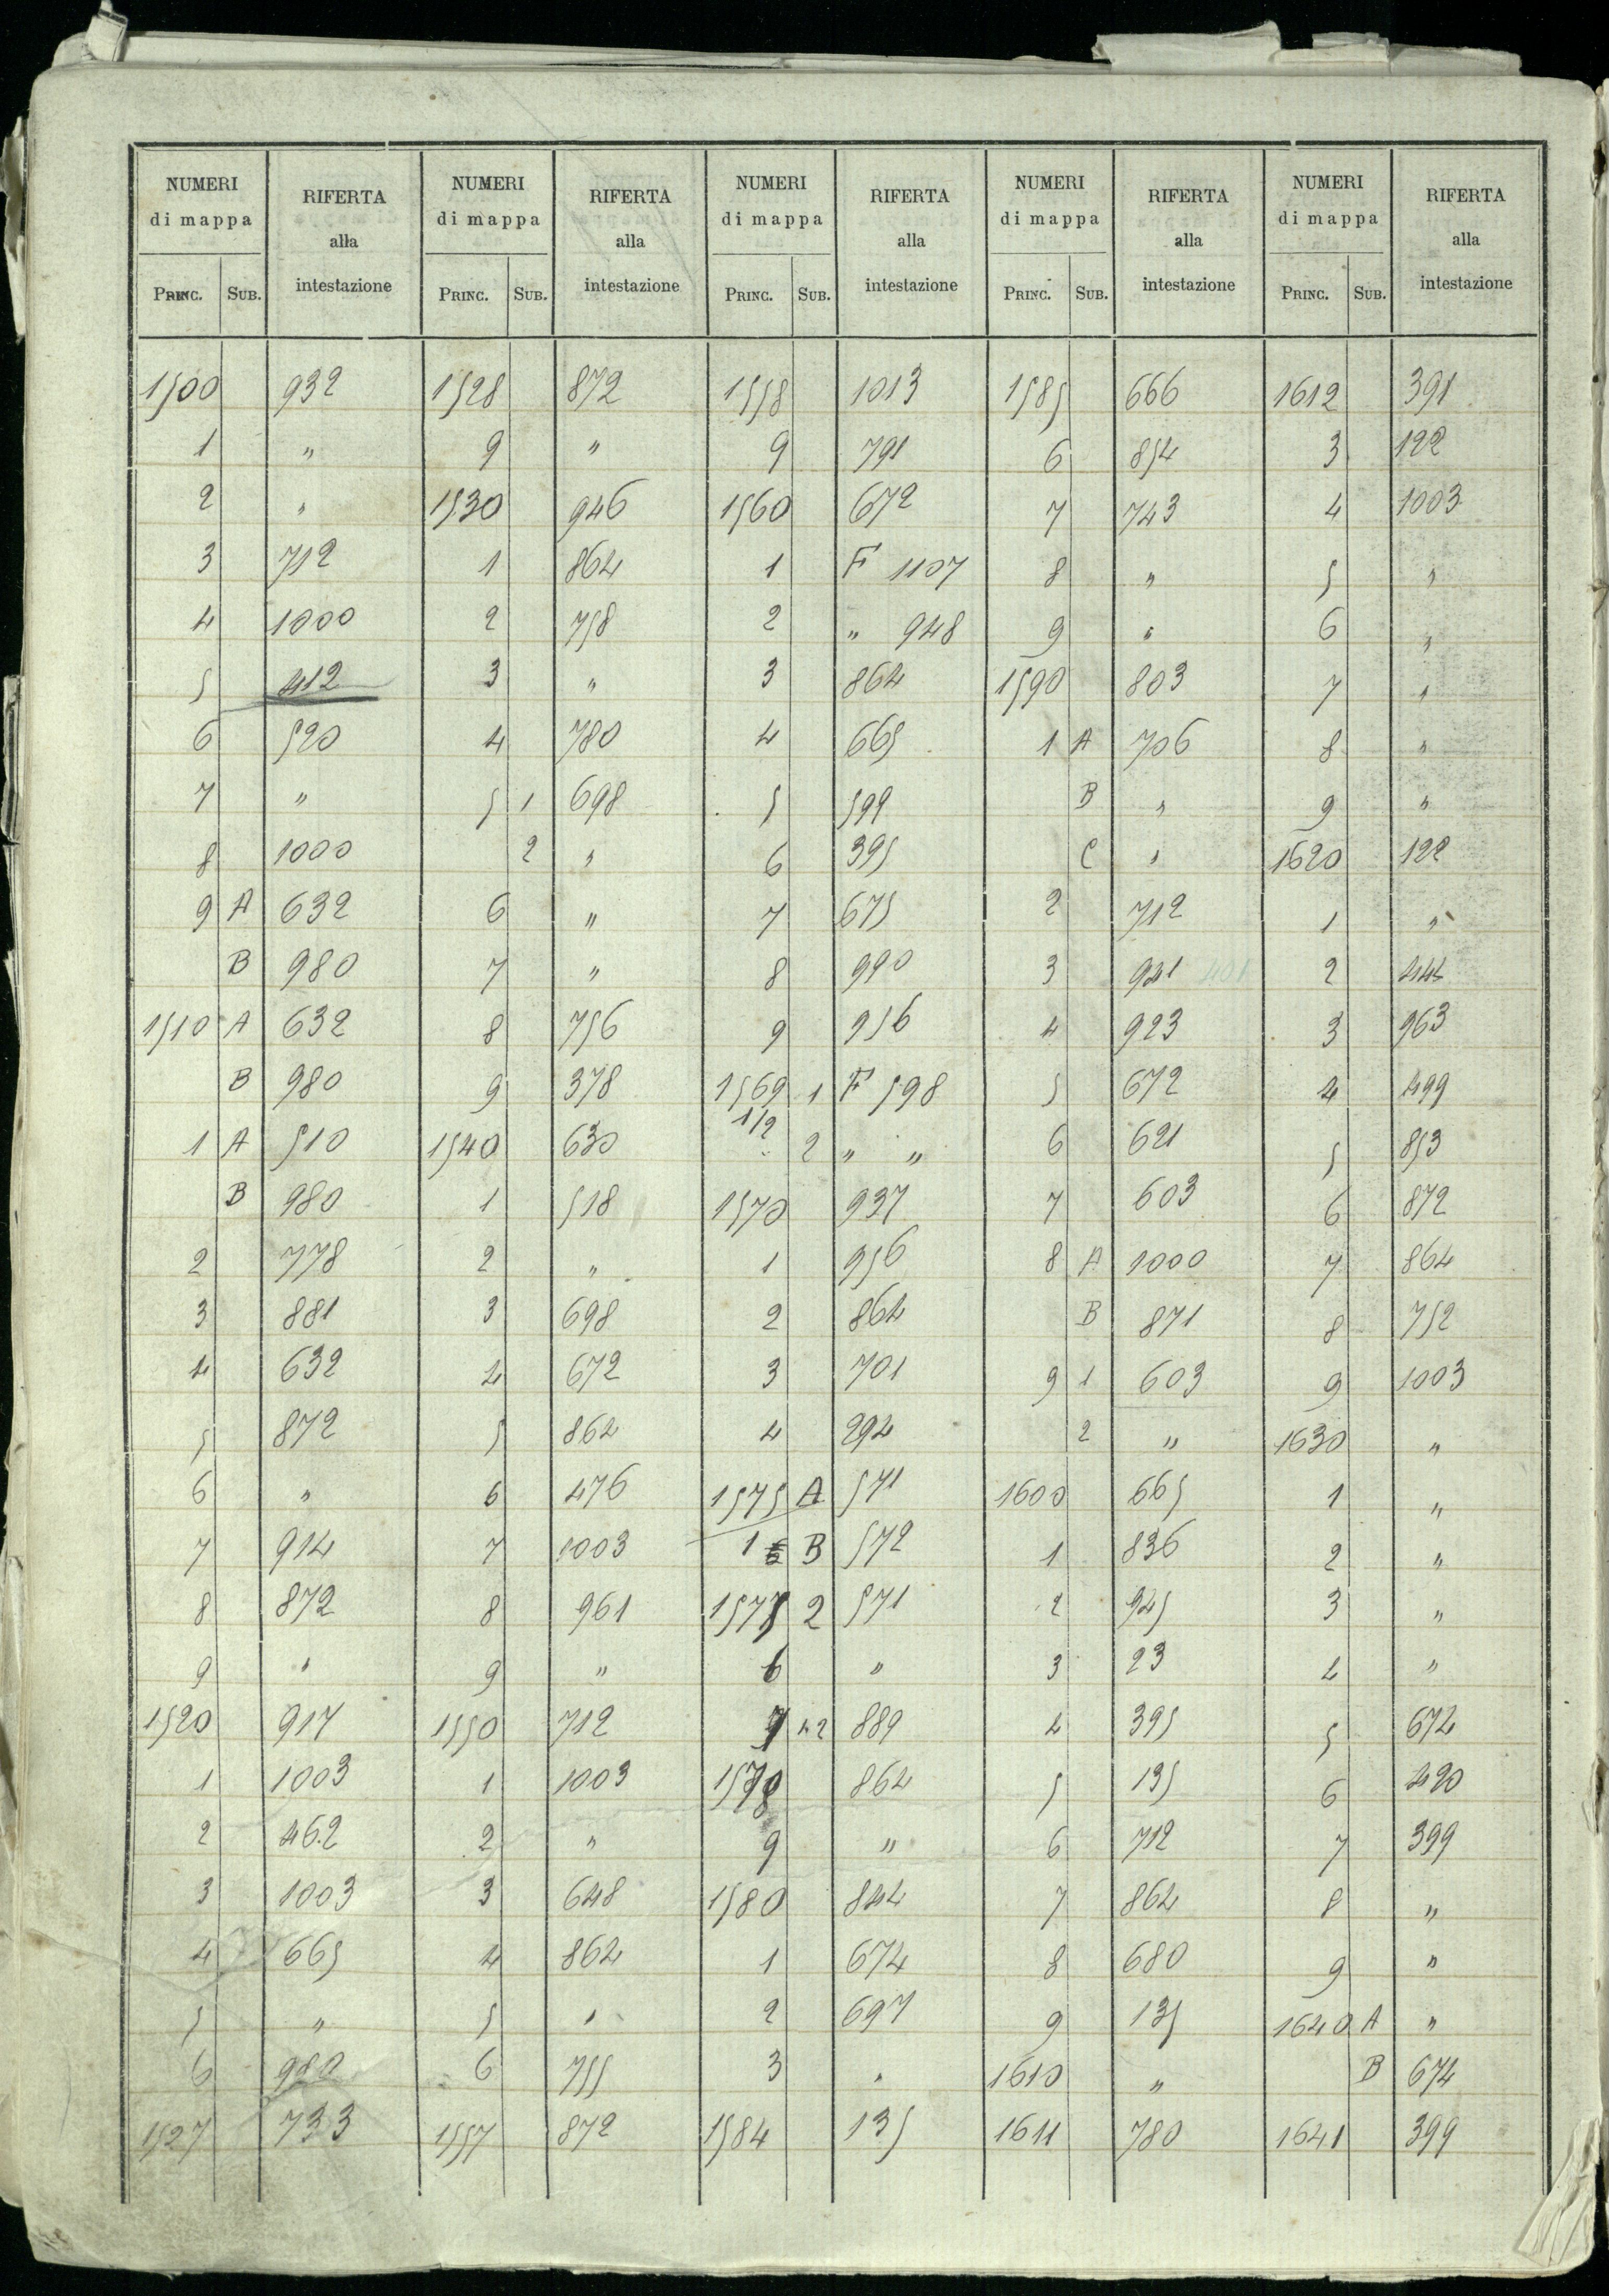 NUMERI di mappa | RIFERTA alla intestazione | NUMERI di mappa | RIFERTA alla intestazione | NUMERI di mappa | RIFERTA alla intestazione | NUMERI di mappa | RIFERTA alla intestazione | NUMERI di mappa | RIFERTA alla intestazione
PRINC. | SUB. | PRINC. | SUB. | PRINC. | SUB. | PRINC. | SUB. | PRINC. | SUB.
1500 932 1528 872 1558 1013 1585 666 1612 391
1 " 9 " 9 791 6 854 3 122
2 " 1530 946 1560 672 7 743 4 1003
3 712 1 864 1 F 1107 8 " 5 "
4 1000 2 758 2 " 948 9 " 6 "
5 412 3 " 3 864 1590 803 7 "
6 520 4 780 4 665 1 A 706 8 "
7 " 5 1 698 5 599 B " 9 "
8 1000 2 " 6 395 C " 1620 122
9 A 632 6 " 7 675 2 712 1 "
B 980 7 " 8 990 3 921 401 2 444
1510 A 632 8 756 9 956 4 923 3 963
B 980 9 378 1569 1 F 598 5 672 4 499
1 A 510 1540 630 1/2 2 " " 6 621 5 853
B 980 1 518 1570 937 7 603 6 872
2 778 2 " 1 956 8 A 1000 7 864
3 881 3 698 2 864 B 871 8 752
4 632 4 672 3 701 9 1 603 9 1003
5 872 5 864 4 294 2 " 1630 "
6 " 6 476 1575 A 571 1600 665 1 "
7 914 7 1003 1 B 572 1 836 2 "
8 872 8 961 1575 2 571 2 945 3 "
9 " 9 " 6 " 3 23 4 "
1520 917 1550 712 7 42 889 4 395 5 674
1 1003 1 1003 1578 864 5 135 6 420
2 462 2 " 9 " 6 712 7 399
3 1003 3 648 1580 844 7 864 8 "
4 665 4 864 1 674 8 680 9 "
5 " 5 " 2 697 9 135 1640 A "
6 980 6 755 3 " 1610 " B 674
1527 733 1557 872 1584 135 1611 780 1641 399